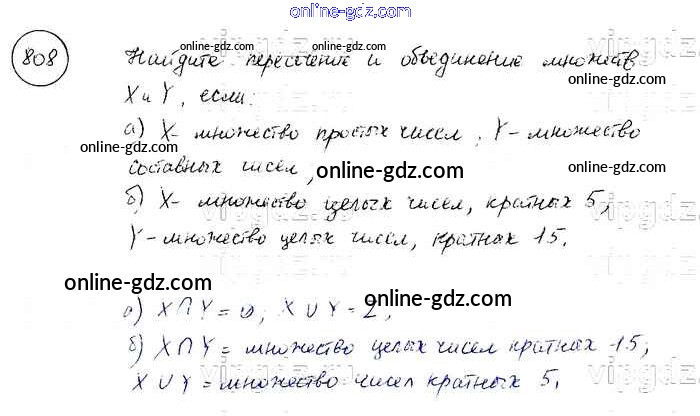 online-gdz.com
808
Найдите пересечение и объединение множеств
X и Y, если:
а) X - множество простых чисел, Y - множество
составных чисел,
б) X - множество целых чисел, кратных 5,
Y - множество целых чисел, кратных 15.
а) X ∩ Y = ∅, X ∪ Y = Z,
б) X ∩ Y = множество целых чисел кратных 15;
X ∪ Y = множество чисел кратных 5.
online-gdz.com
online-gdz.com
online-gdz.com
online-gdz.com
online-gdz.com
online-gdz.com
online-gdz.com
online-gdz.com
online-gdz.com
online-gdz.com
online-gdz.com